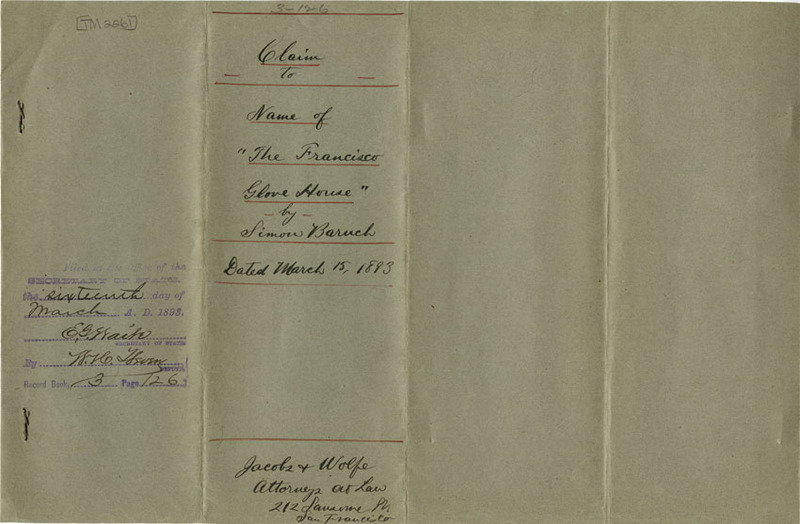 TM 2261
Filed in the office of the
SECRETARY OF STATE
the sixteenth day of
March A. D. 1893.
E. G. Waite
SECRETARY OF STATE
By W. H. C.
DEPUTY
Record Book, 3 Page 126
3-126
Claim
to
Name of
"The Francisco
Glove House"
- by -
Simon Baruch
Dated March 15, 1893
Jacobs & Wolfe
Attorneys at Law
212 Sansome St.
San Francisco